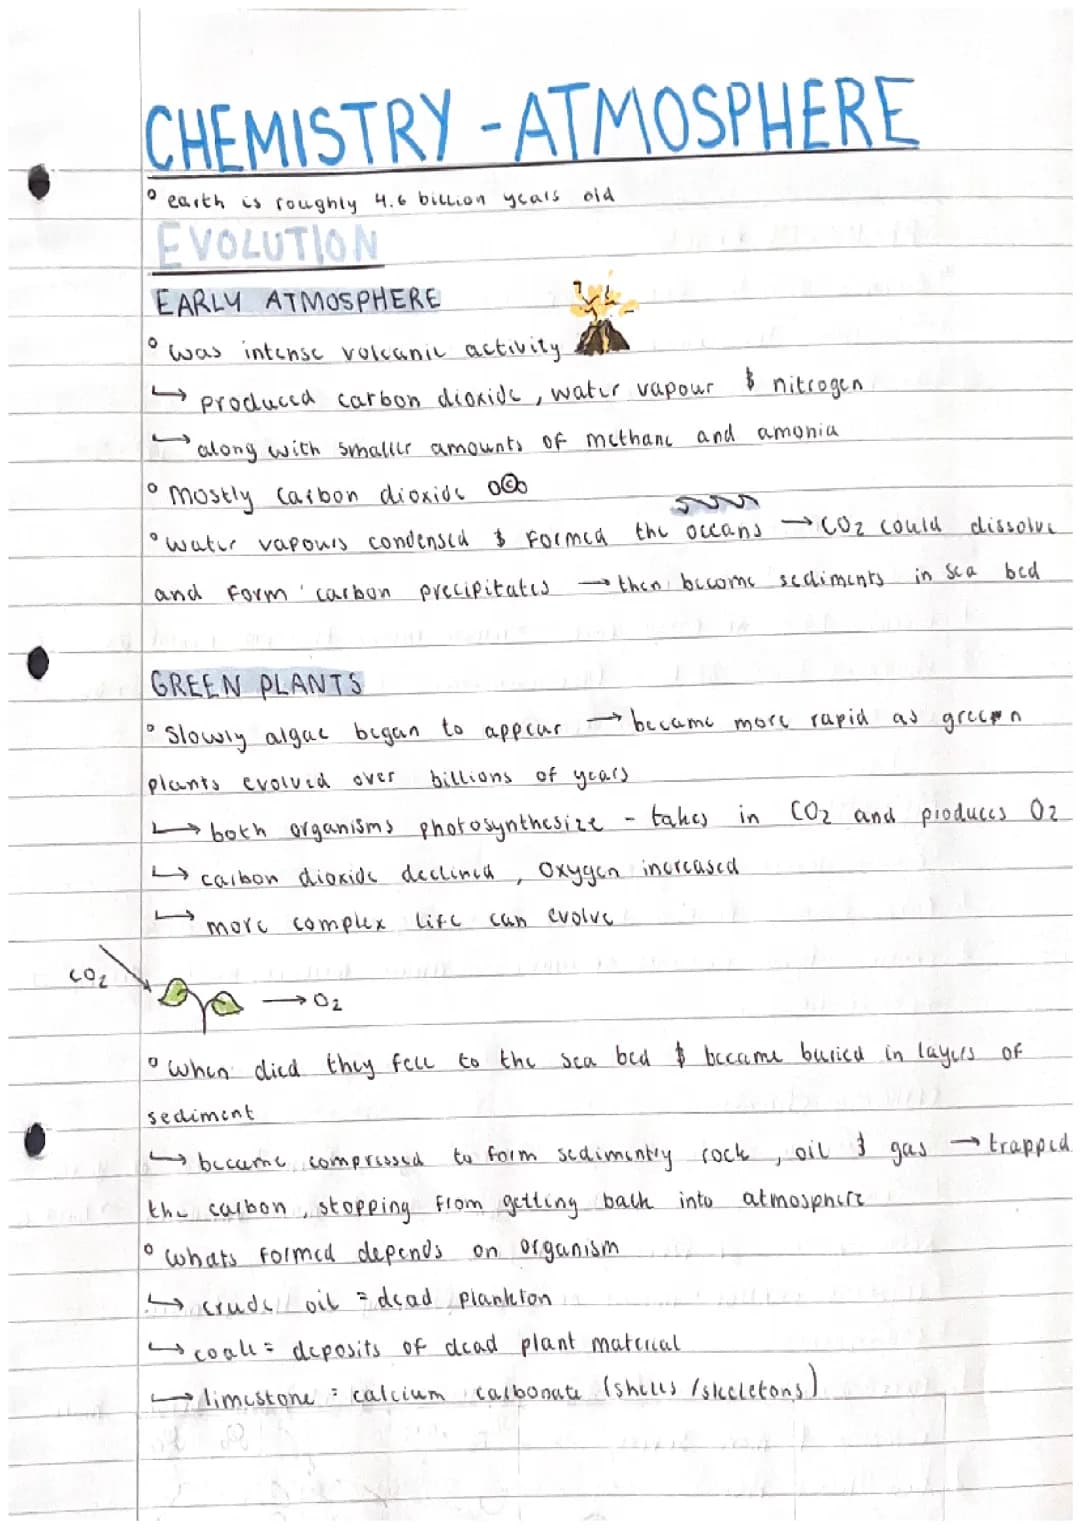 CHEMISTRY - ATMOSPHERE
° earth is roughly 4.6 billion years old
EVOLUTION
EARLY ATMOSPHERE
° was intense volcanic activity
↳ produced carbon dioxide, water vapour & nitrogen
↳ along with smaller amounts of methane and amonia
° mostly carbon dioxide OCO
° water vapours condensed & formed the oceans → CO2 could dissolve
and form carbon precipitates → then become sediments in sea bed
GREEN PLANTS
° Slowly algae began to appear → became more rapid as green
plants evolved over billions of years
↳ both organisms photosynthesize - takes in CO2 and produces O2
↳ carbon dioxide declined, oxygen increased
↳ more complex life can evolve
CO2
→ O2
° when died they fell to the sea bed & became buried in layers of
sediment
↳ became compressed to form sedimentry rock, oil & gas → trapped
the carbon, stopping from getting back into atmosphere
° whats formed depends on organism
↳ crude oil = dead plankton
↳ coal = deposits of dead plant material
↳ limestone = calcium carbonate (shells / skeletons)